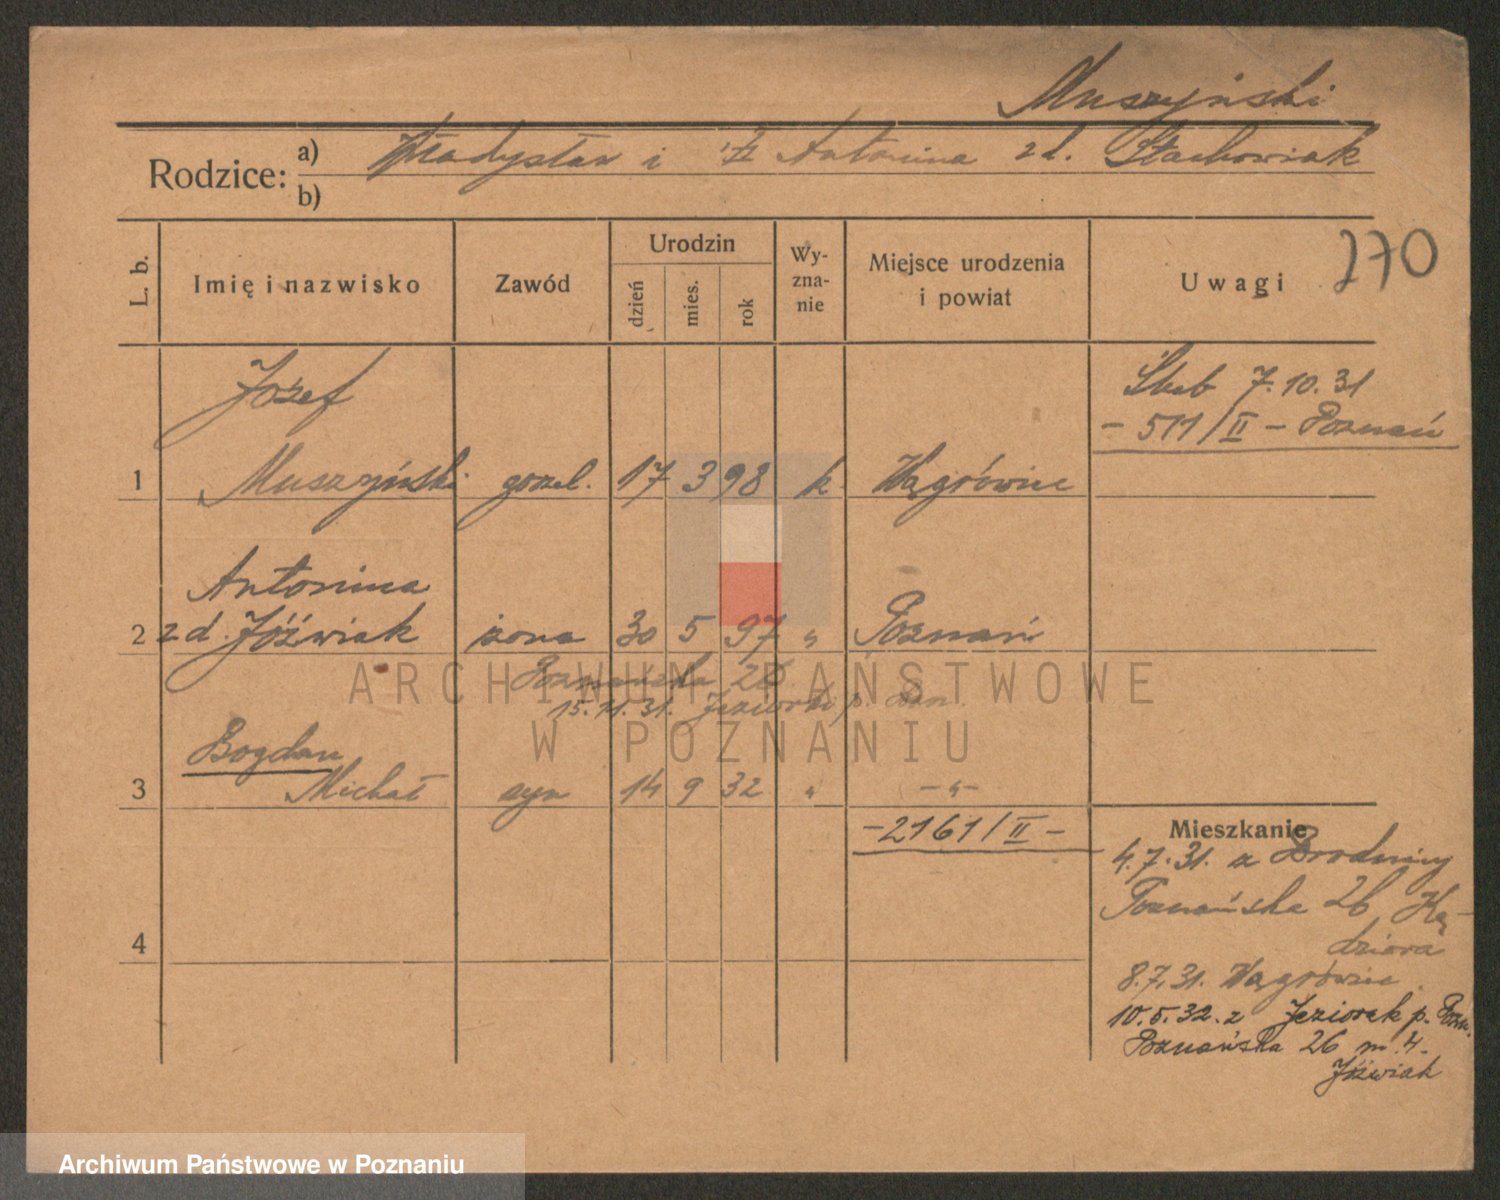 Muszyński
Rodzice: a) Władysław i Antonina z d. Stachowiak
b)
L. b. Imię i nazwisko Zawód Urodzin dzień mies. rok Wy-zna-nie Miejsce urodzenia i powiat Uwagi 270
Józef
Ślub 7.10.31
- 511/II - Poznań
1 Muszyński gorzel. 17 3 98 k Wągrówiec
Antonina
2 z d. Jóźwiak żona 30 5 97 " Poznań
Poznańska 26
15.11.31. Jeziorki p.
ARCHIWUM PAŃSTWOWE
W POZNANIU
Bogdan
3 Michał syn 14 9 32 " - " -
- 2161/II -
Mieszkanie
4.7.31. z Brodnicy
Poznańska 26
4
8.7.31. Wągrówiec.
10.5.32. z Jeziorek p. Pozn.
Poznańska 26 m. 4.
Jóźwiak
Archiwum Państwowe w Poznaniu